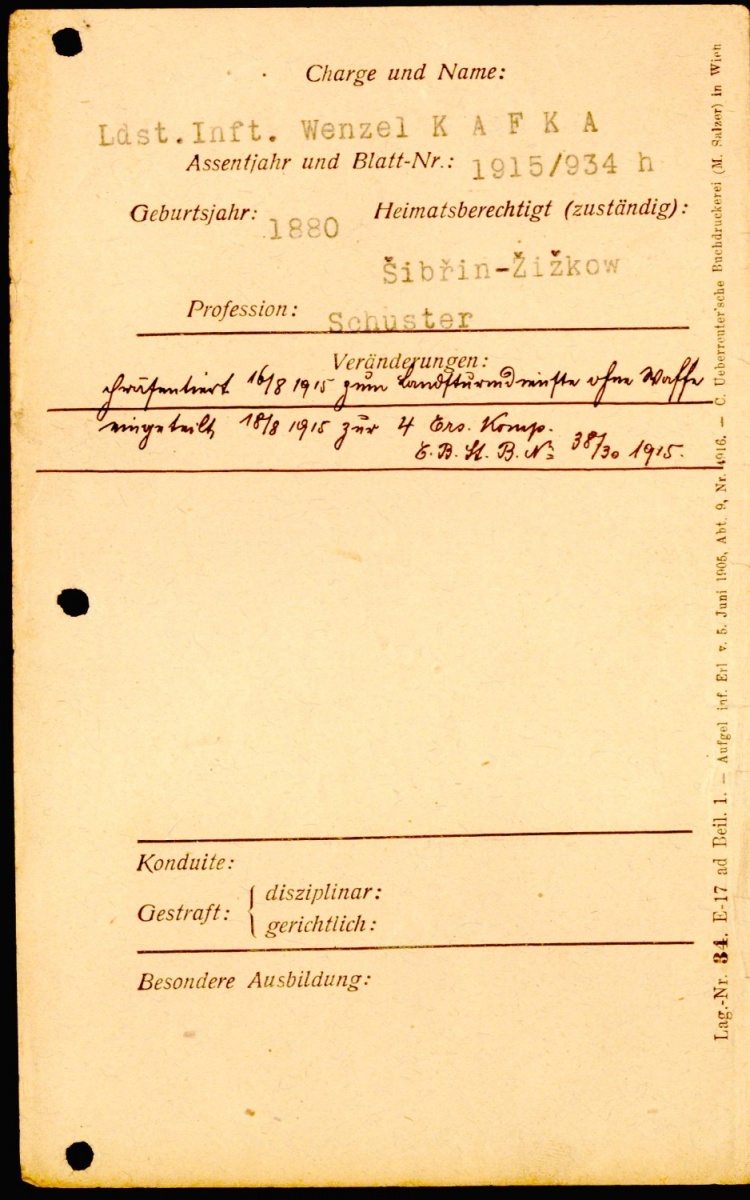 Charge und Name:
Ldst.Inft. Wenzel K A F K A
Assentjahr und Blatt-Nr.: 1915/934 h
Geburtsjahr: 1880 Heimatsberechtigt (zuständig):
Šibřin-Žižkow
Profession: Schuster
Veränderungen:
Präsentiert 16/8 1915 zum Landsturmdienste ohne Waffe
eingeteilt 18/8 1915 zur 4 Ers. Komp.
E. B. St. B. No 38/30 1915.
Konduite:
Gestraft: { disziplinar:
gerichtlich:
Besondere Ausbildung:
Lag.-Nr. 34. E-17 ad Beil. 1. — Aufgel inf. Erl v. 5. Juni 1905, Abt. 9, Nr. 4916. — C. Ueberreuter'sche Buchdruckerei (M. Salzer) in Wien